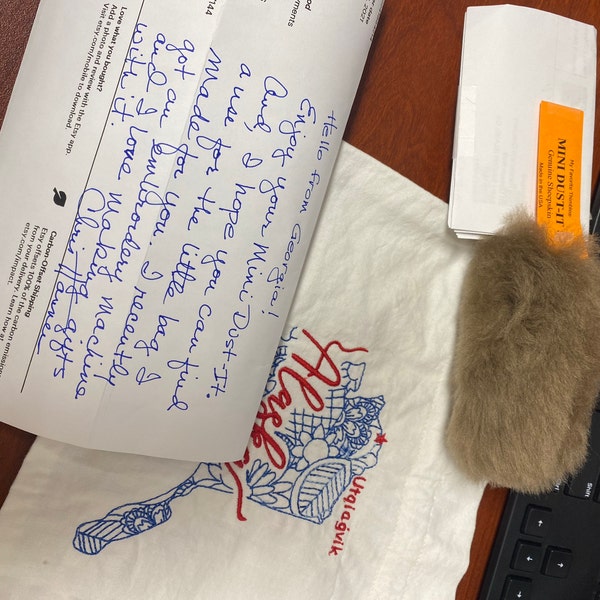 2021
Love what you bought?
Add a photo and review with the Etsy app.
Visit etsy.com/mobile to download.
Carbon-Offset Shipping
Etsy offsets 100% of the carbon emissions
from your delivery. Learn how at
etsy.com/impact
Hello from Georgia!
Enjoy your Mini Dust-It.
And, I hope you can find
a use for the little bag I
made for you. I recently
got an Embroidery Machine
and I love Making gifts
with it. Chris
My Favorite
MINI DUST-IT
Genuine Sheepskin
Made in the USA
Alaska
Utqiagvik
Shift